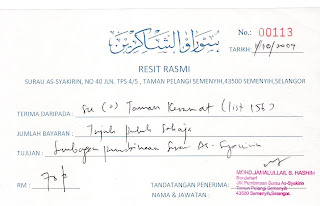 سوراو الشاكرين
No.: 00113
TARIKH: 1/10/2007
RESIT RASMI
SURAU AS-SYAKIRIN, NO 40 JLN. TPS 4/5 , TAMAN PELANGI SEMENYIH,43500 SEMENYIH,SELANGOR
TERIMA DARIPADA: Taman (list 156)
JUMLAH BAYARAN: Tujuh puluh sahaja
TUJUAN : Sumbangan pembinaan Surau As-Syakirin
RM : 70/-
TANDATANGAN PENERIMA:
NAMA & JAWATAN:
MOHD JAMALULLAIL B. HASHIM
Bendahari
J/K Pembinaan Surau As-Syakirin
Taman Pelangi Semenyih
43500 Semenyih,Selangor.